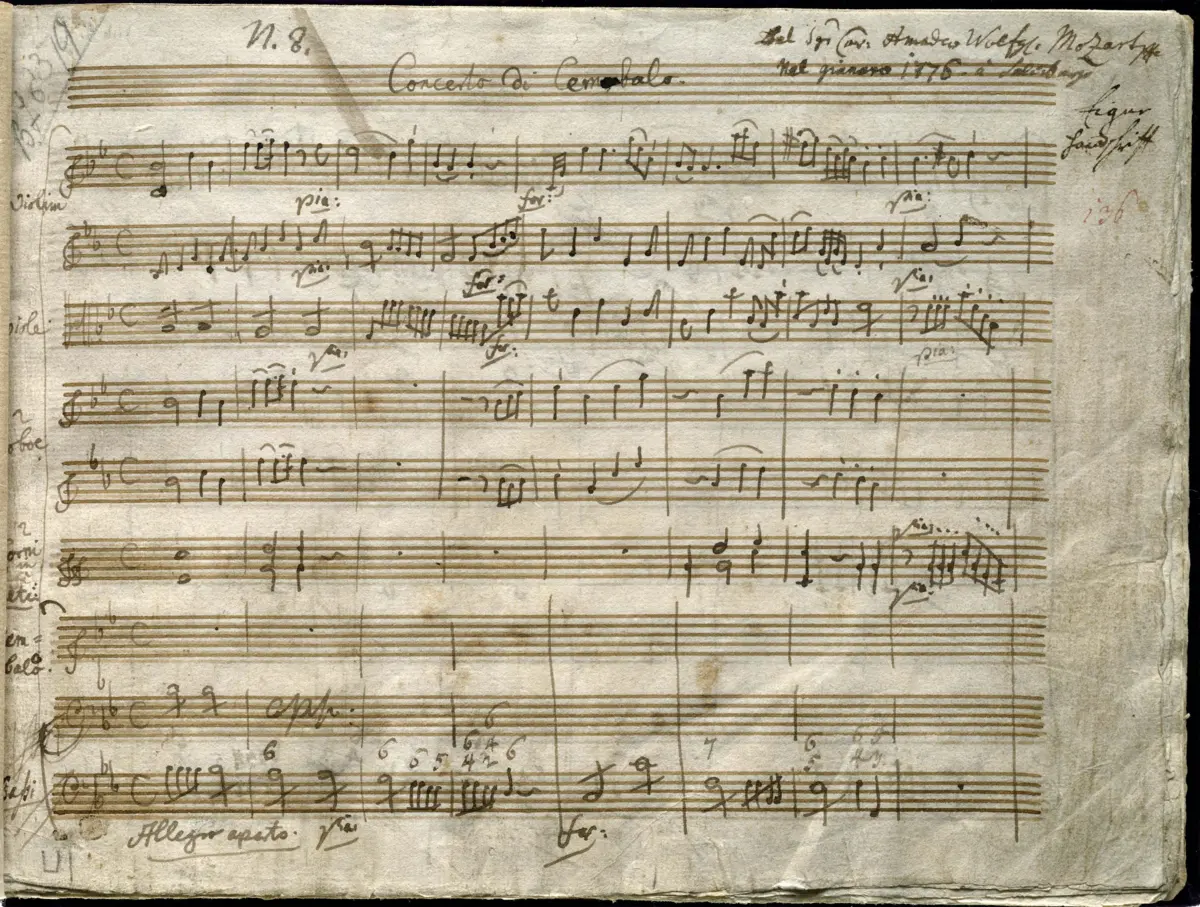 N. 8.
19
Concerto di Cembalo.
Del Sgr Cav: Amadeo Wolfg. Mozart
nel gianaro 1776 à
136
Violini
pia:
for:
pia:
pia:
for:
pia:
viole:
pia:
for:
pia:
2
oboe
2
corni
pia:
pia:
cem=
balo.
6
6
6 5
6 4
4 2
6
7
6
5
6 5
4 3
Baßi
Allegro aperto.
pia:
for: